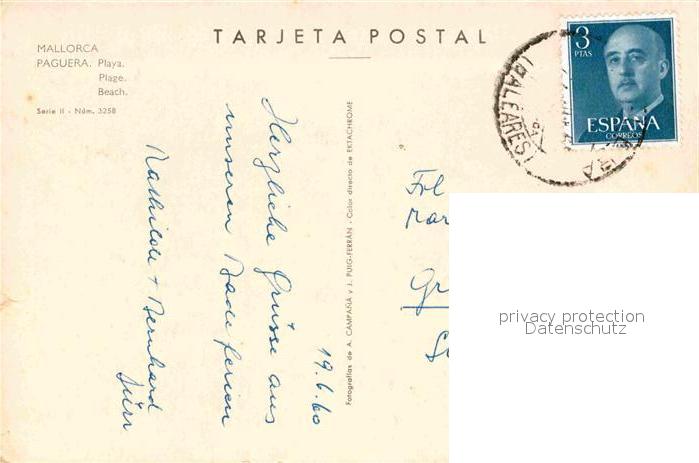 TARJETA POSTAL
MALLORCA
PAGUERA. Playa.
Plage.
Beach.
Serie II - Núm. 3258
3
PTAS
ESPAÑA
CORREOS
(BALEARES)
19.6.60
Herzliche Grüsse aus
unseren Badeferien
Mathilde + Bernhard
Fotografías de A. CAMPAÑÁ y J. PUIG-FERRÁN - Color directo de EKTACHROME
Frl
Mar
Gr
privacy protection
Datenschutz